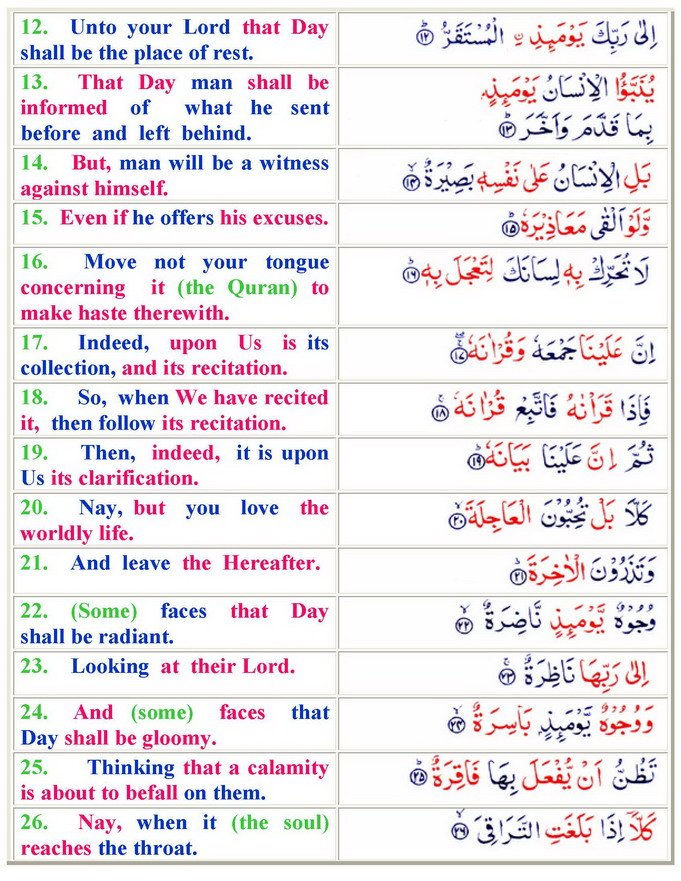 12. Unto your Lord that Day
shall be the place of rest.
اِلٰى رَبِّكَ يَوْمَىِٕذِ ِ۟الْمُسْتَقَرُّ ۱۲
13. That Day man shall be
informed of what he sent
before and left behind.
يُنَبَّؤُا الْاِنْسَانُ يَوْمَىِٕذٍۭ
بِمَا قَدَّمَ وَاَخَّرَ ۱۳
14. But, man will be a witness
against himself.
بَلِ الْاِنْسَانُ عَلٰى نَفْسِهٖ بَصِيْرَةٌ ۱۴
15. Even if he offers his excuses.
وَّلَوْ اَلْقٰى مَعَاذِيْرَهٗ ۱۵
16. Move not your tongue
concerning it (the Quran) to
make haste therewith.
لَا تُحَرِّكْ بِهٖ لِسَانَكَ لِتَعْجَلَ بِهٖ ۱۶
17. Indeed, upon Us is its
collection, and its recitation.
اِنَّ عَلَيْنَا جَمْعَهٗ وَقُرْاٰنَهٗ ۱۷
18. So, when We have recited
it, then follow its recitation.
فَاِذَا قَرَاْنٰهُ فَاتَّبِعْ قُرْاٰنَهٗ ۱۸
19. Then, indeed, it is upon
Us its clarification.
ثُمَّ اِنَّ عَلَيْنَا بَيَانَهٗ ۱۹
20. Nay, but you love the
worldly life.
كَلَّا بَلْ تُحِبُّوْنَ الْعَاجِلَةَ ۲۰
21. And leave the Hereafter.
وَتَذَرُوْنَ الْاٰخِرَةَ ۲۱
22. (Some) faces that Day
shall be radiant.
وُجُوْهٌ يَّوْمَىِٕذٍ نَّاضِرَةٌ ۲۲
23. Looking at their Lord.
اِلٰى رَبِّهَا نَاظِرَةٌ ۲۳
24. And (some) faces that
Day shall be gloomy.
وَوُجُوْهٌ يَّوْمَىِٕذٍۭ بَاسِرَةٌ ۲۴
25. Thinking that a calamity
is about to befall on them.
تَظُنُّ اَنْ يُّفْعَلَ بِهَا فَاقِرَةٌ ۲۵
26. Nay, when it (the soul)
reaches the throat.
كَلَّاۤ اِذَا بَلَغَتِ التَّرَاقِيَ ۲۶